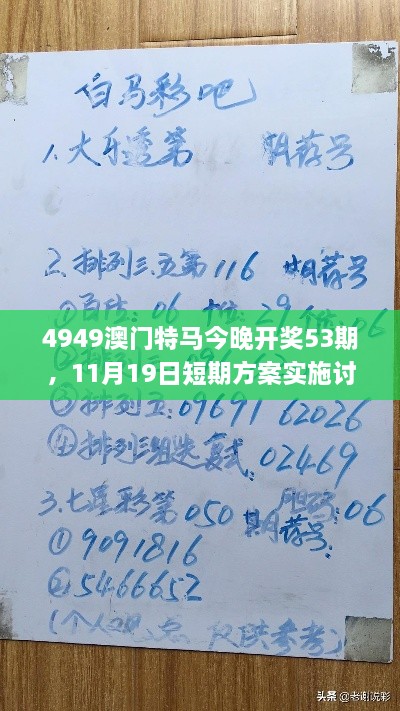 白马彩吧
1、大乐透第 期荐号
2、排列三.五第116期荐号
①百位:06 十位:29 个位:06
4949澳门特马今晚开奖53期
，11月19日短期方案实施讨
③排列五:09691 62026
④排列三组选复式:02469
3.七星彩第050期荐号: 胆码:06
①9091816
②5466652
(个人观点 仅供参考)
头条 @老谢说彩